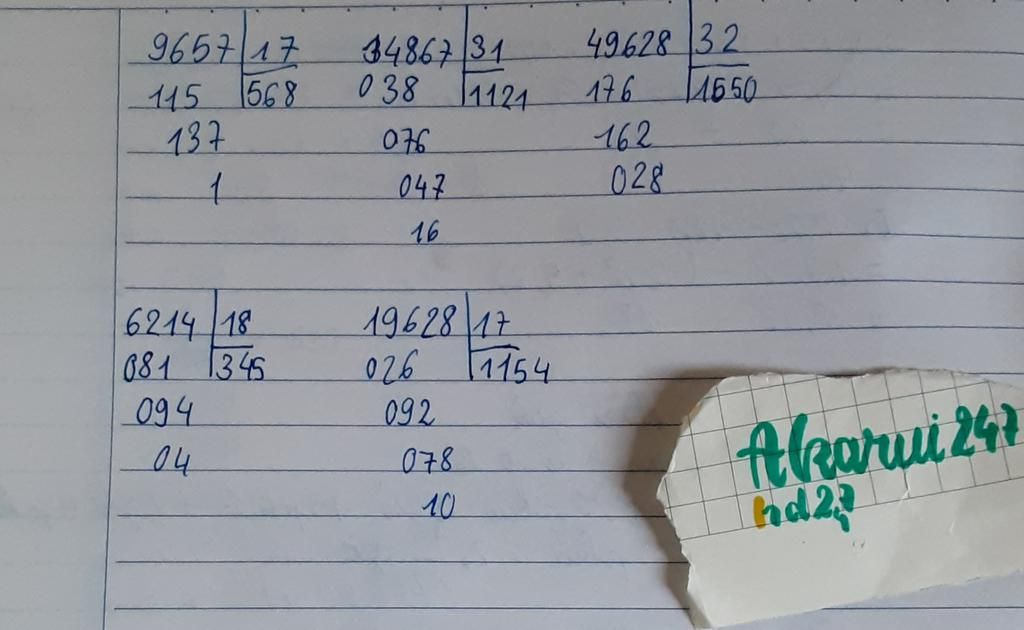 9657 17 34867 31 49628 32
115 568 038 1121 176 1550
137 076 162
1 047 028
16
6214 18 19628 17
081 345 026 1154
094 092
04 078
10
Akarui247